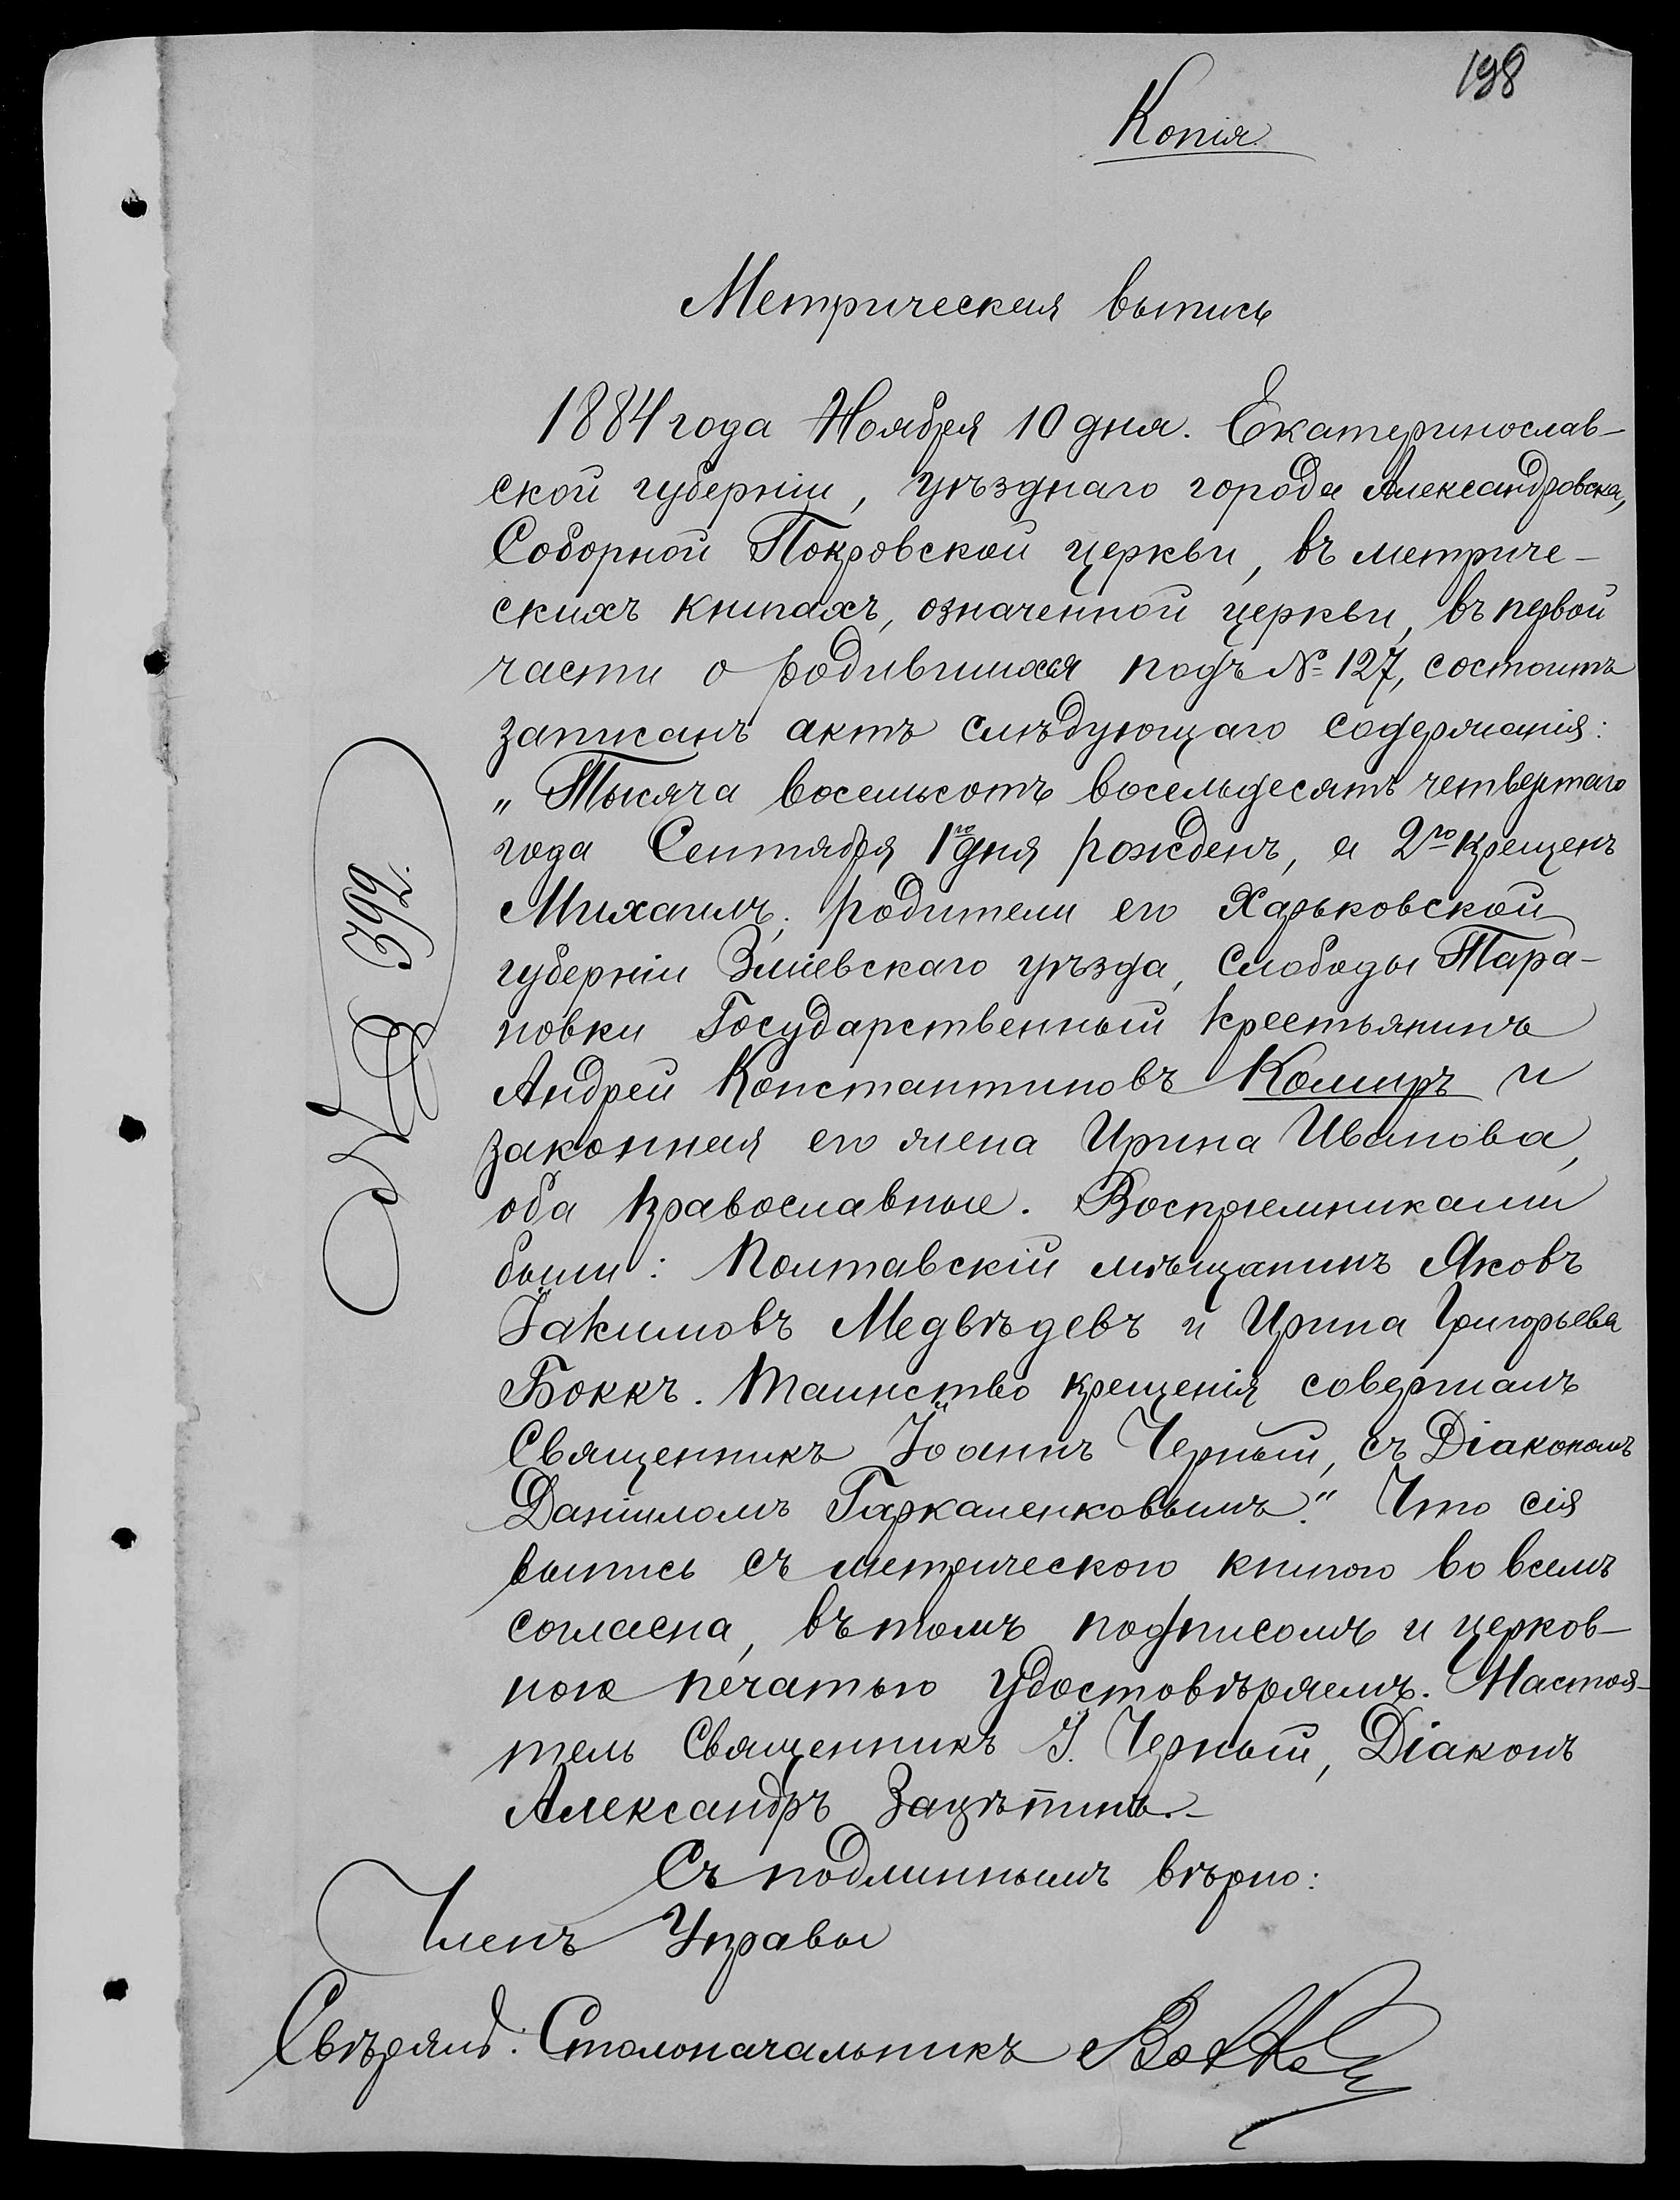 198
Копія
Метрическая выпись
1884 года Ноября 10 дня. Екатеринослав-
ской губерніи, уѣзднаго города Александровска,
Соборной Покровской церкви, въ метриче-
скихъ книгахъ, означенной церкви, въ первой
части о родившихся подъ № 127, состоитъ
записанъ актъ слѣдующаго содержанія:
„Тысяча восемьсотъ восемьдесятъ четвертаго
года Сентября 1го дня рожденъ, а 2го крещенъ
Михаилъ; родители его Харьковской
губерніи Зміевскаго уѣзда, Слободы Тара-
новки Государственный крестьянинъ
Андрей Константиновъ Комиръ и
законная его жена Ирина Иванова,
оба православные. Воспріемниками
были: Полтавскій мѣщанинъ Яковъ
Іакимовъ Медвѣдевъ и Ирина Григорьева
Боккъ. Таинство крещенія совершалъ
Священникъ Іоаннъ Черный, съ Діакономъ
Даніиломъ Гаркаленковымъ." Что сія
выпись съ метрическою книгою во всемъ
согласна, въ томъ подписомъ и церков-
ною печатью удостовѣряемъ. Настоя-
тель Священникъ І. Черный, Діаконъ
Александръ Зацѣпинъ.-
Съ подлиннымъ вѣрно:
Членъ Управы
Свѣрялъ: Столоначальникъ
№ 392.